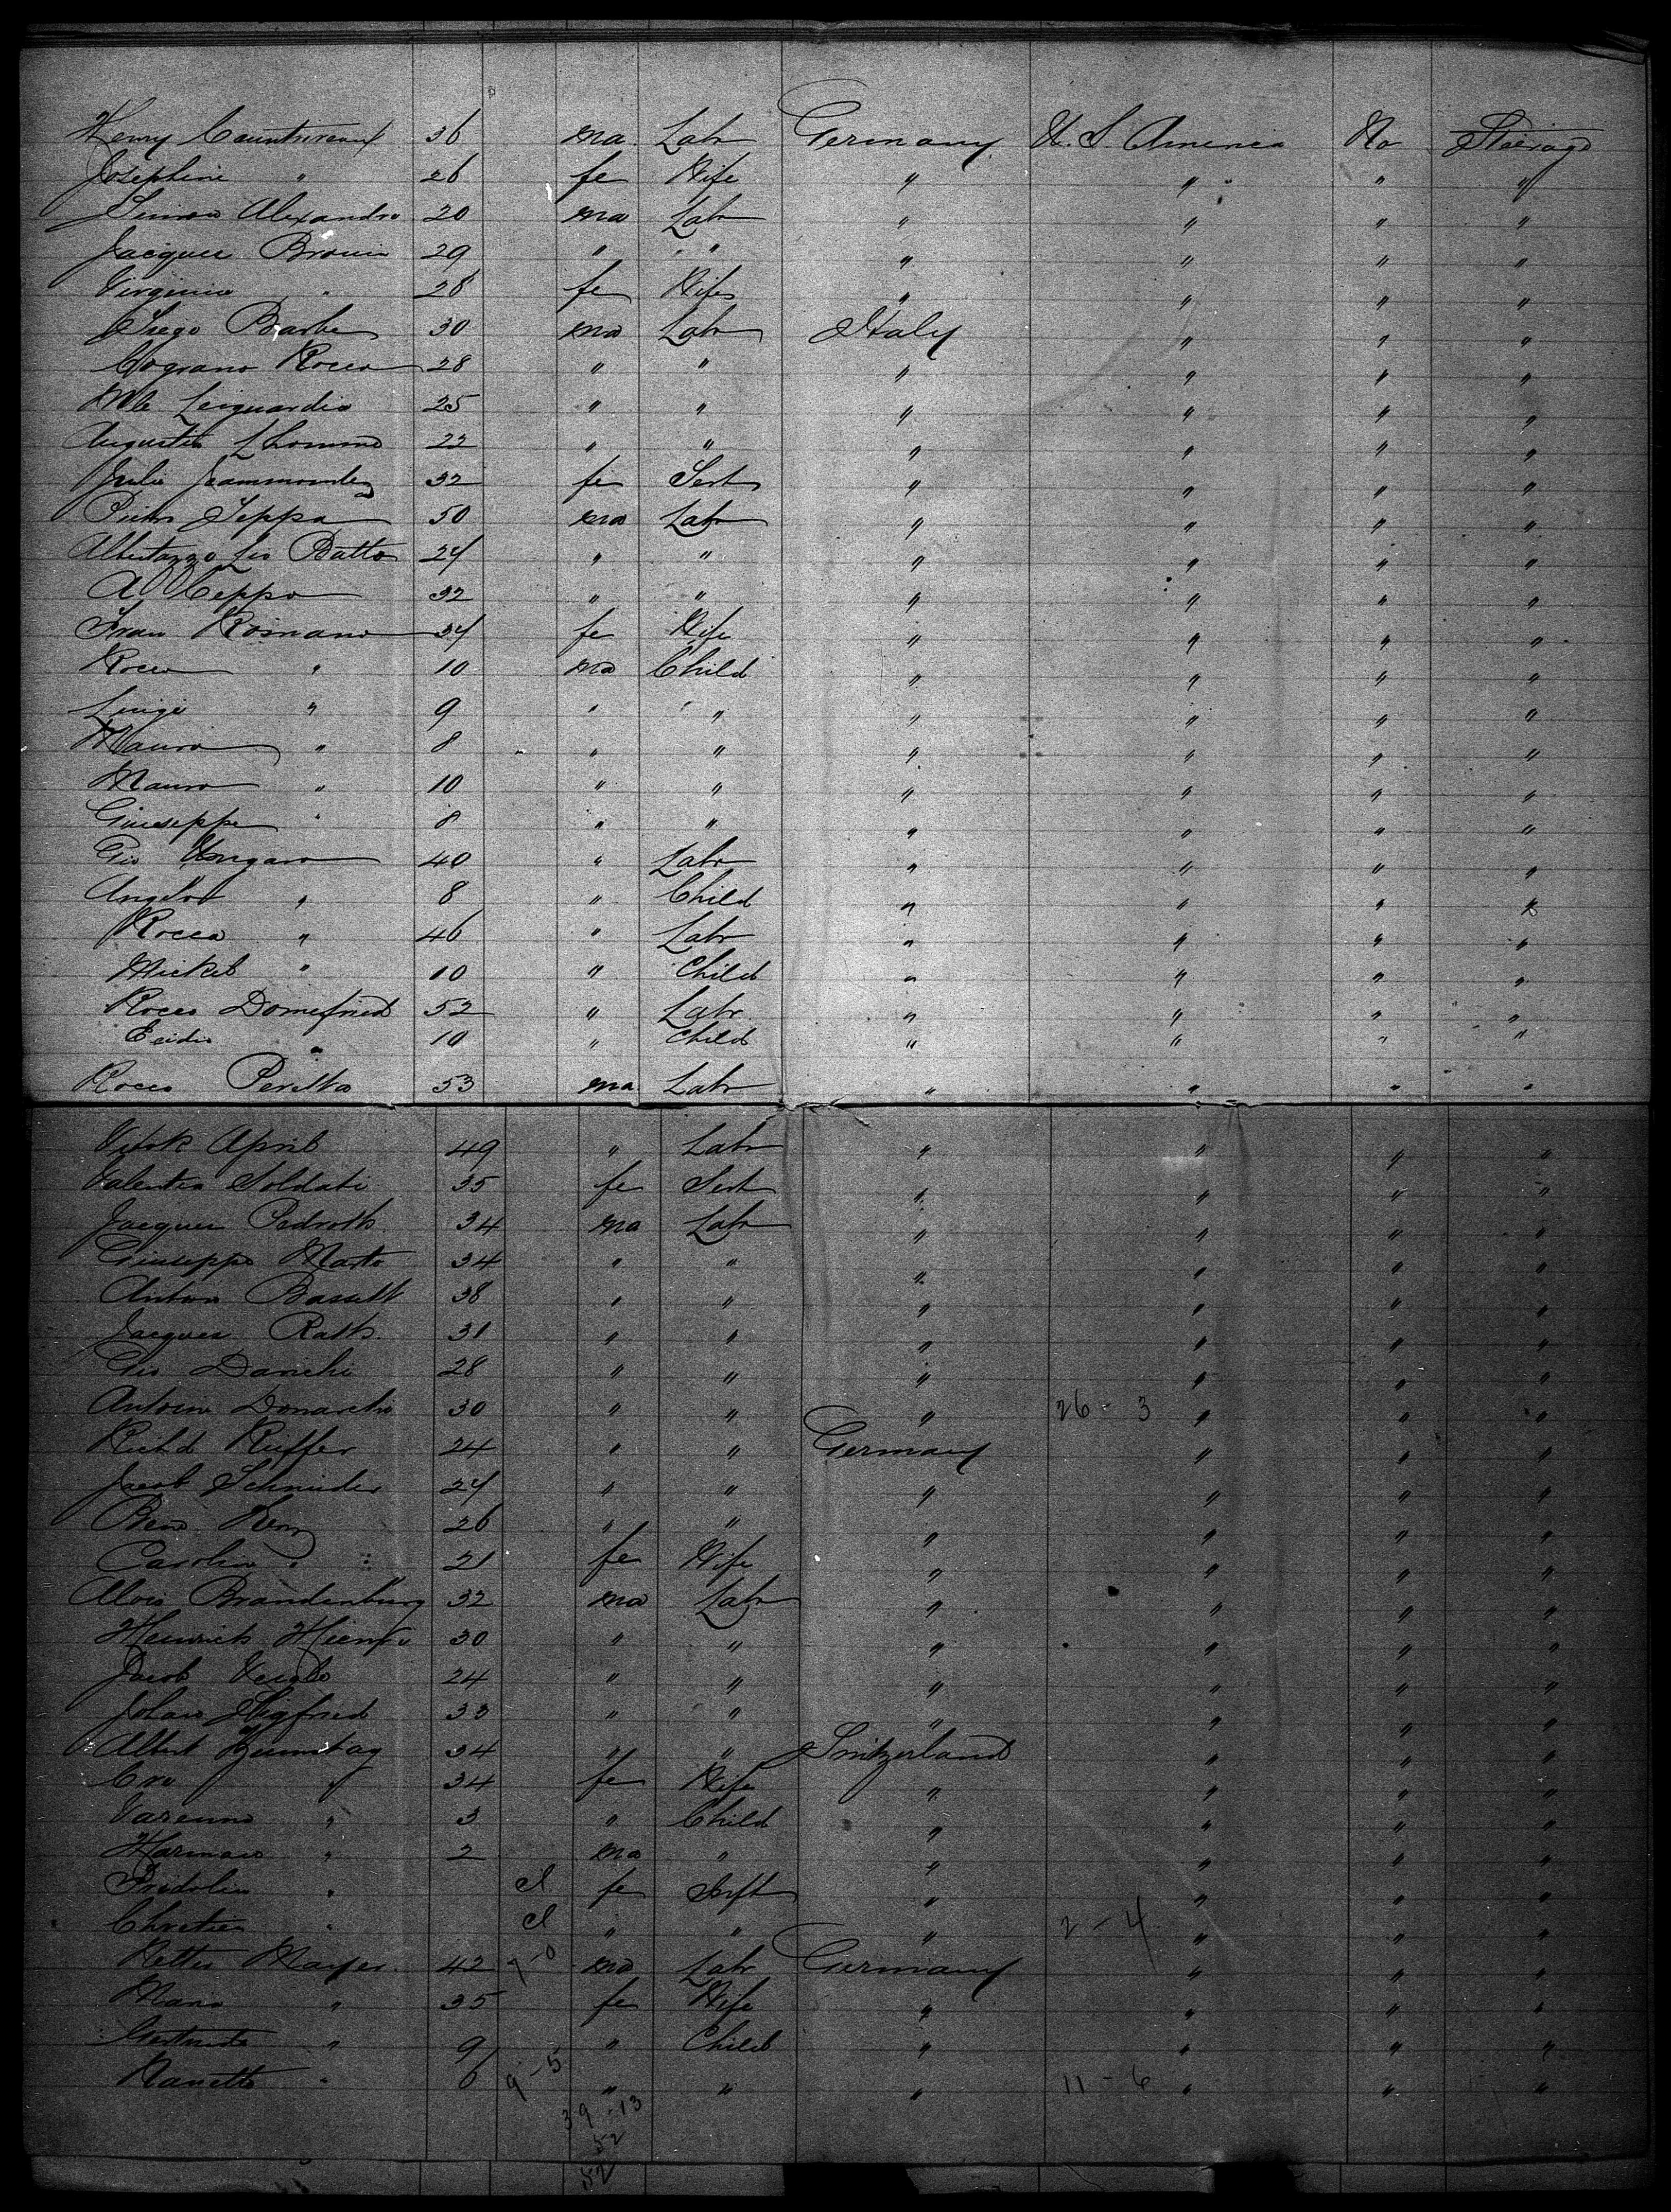 Henry 36 ma. Labr Germany U. S. America No Steerage
Josephine " 26 fe Wife " " " "
Simon Alexandre 20 ma Labr " " " "
Jacques Brouin 29 " " " " " "
Virginie " 28 fe Wife " " " "
Barbe 30 ma Labr Italy " " "
Rocco 28 " " " " " "
25 " " " " " "
Augustus L'homme 22 " " " " " "
Julie 32 fe Sert " " " "
Pietro Jeppa 50 ma Labr " " " "
Albertazzo Batto 24 " " " " " "
A Ceppo 32 " " " " " "
Frau Romano 34 fe Wife " " " "
Rocco " 10 ma Child " " " "
Luigi " 9 " " " " " "
Mauro " 8 " " " " " "
Mauro " 10 " " " " " "
Giuseppe " 8 " " " " " "
Gio Ungaro 40 " Labr " " " "
Angelo " 8 " Child " " " "
Rocco " 46 " Labr " " " "
Mickel " 10 " Child " " " "
Rocco Domefried 52 " Labr " " " "
" 10 " Child " " " "
Rocco Peretta 53 ma Labr " " " "
April 49 " Labr " " " "
Valentin Soldati 35 fe Sert " " " "
Jacques Pedroth 34 ma Labr " " " "
Giuseppe Marto 34 " " " " " "
Anton Bassett 38 " " " " " "
Jacques Rath 31 " " " " " "
Gio Danichi 28 " " " " " "
Antoine Donarchi 30 " " " 26 - 3 " " "
Richd Kuffer 24 " " Germany " " "
Jacob Schnider 24 " " " " " "
26 " " " " " "
Carolin " 21 fe Wife " " " "
Alois Brandenburg 32 ma Labr " " " "
Heinrich 30 " " " " " "
Jacob 24 " " " " " "
Sigfried 33 " " " " " "
Albert Zumstag 34 " " Switzerland " " "
" 34 fe Wife " " " "
" 3 " Child " " " "
Herman " 2 ma " " " " "
Fridolin " cl fe Inft " " " "
Chretien " cl " " " 2 - 4 " " "
Mayer 42 9-0 ma Labr Germany " " "
Maria " 35 fe Wife " " " "
Gertrude " 9 " Child " " " "
Nanette " 6 9-5 " " " 11 - 6 " " "
39 - 13
52
52